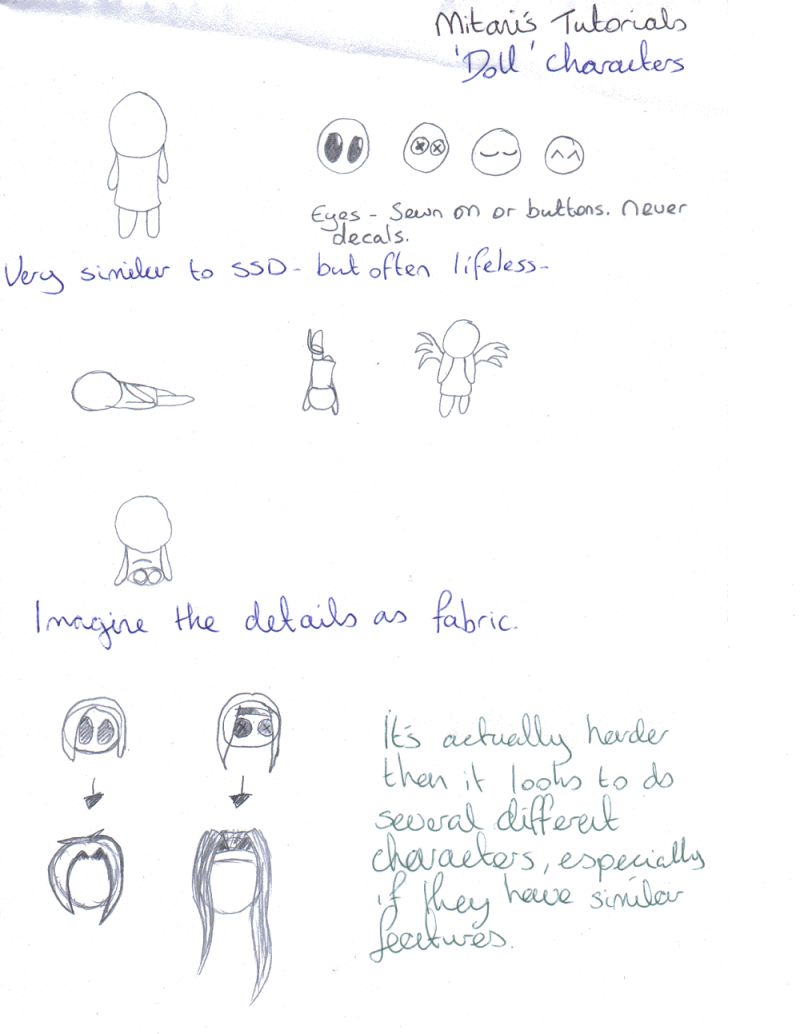 Mitari's Tutorials
'Doll' characters
Eyes - Sewn on or buttons. Never
decals.
Very similar to SSD - but often lifeless -
Imagine the details as fabric.
It's actually harder
then it looks to do
several different
characters, especially
if they have similar
features.